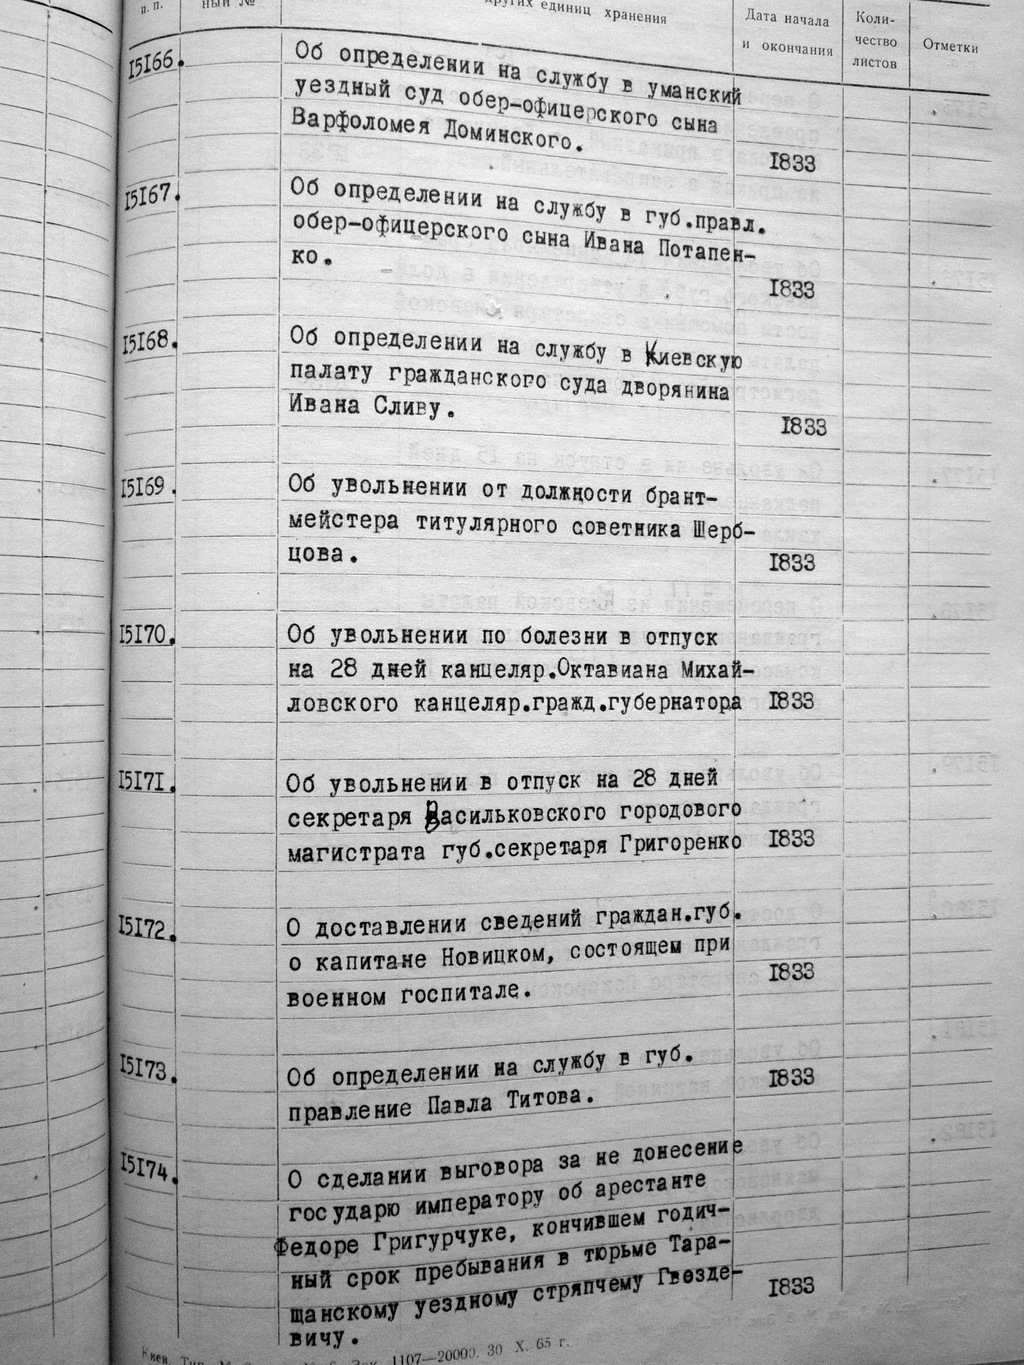 п. п.
ный №
других единиц хранения
Дата начала
и окончания
Коли-
чество
листов
Отметки
I5I66.
Об определении на службу в уманский
уездный суд обер-офицерского сына
Варфоломея Доминского.
I833
I5I67.
Об определении на службу в губ.правл.
обер-офицерского сына Ивана Потапен-
ко.
I833
I5I68.
Об определении на службу в Киевскую
палату гражданского суда дворянина
Ивана Сливу.
I833
I5I69.
Об увольнении от должности брант-
мейстера титулярного советника Щерб-
цова.
I833
I5I70.
Об увольнении по болезни в отпуск
на 28 дней канцеляр.Октавиана Михай-
ловского канцеляр.гражд.губернатора
I833
I5I7I.
Об увольнении в отпуск на 28 дней
секретаря Васильковского городового
магистрата губ.секретаря Григоренко
I833
I5I72.
О доставлении сведений граждан.губ.
о капитане Новицком, состоящем при
военном госпитале.
I833
I5I73.
Об определении на службу в губ.
правление Павла Титова.
I833
I5I74.
О сделании выговора за не донесение
государю императору об арестанте
Федоре Григурчуке, кончившем годич-
ный срок пребывания в тюрьме Тара-
щанскому уездному стряпчему Гвозде-
вичу.
I833
Киев. Тип. Зак. 1107—20000. 30 X. 65 г.